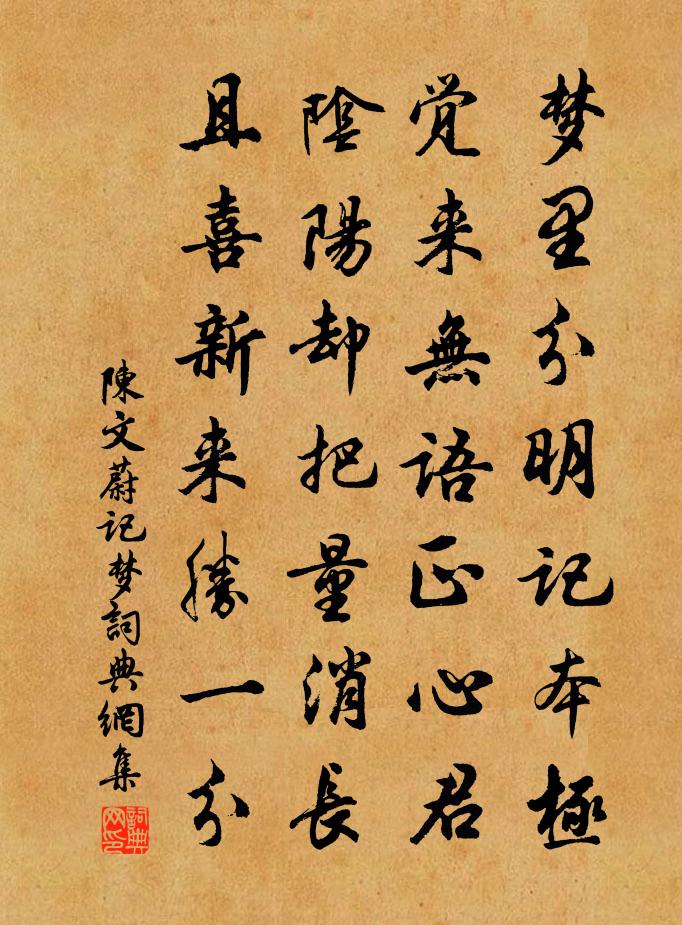 梦里分明记本極
觉来無語正心君
陰陽却把量消長
且喜新来勝一分
陳文蔚记梦詞典網集
詞典网印